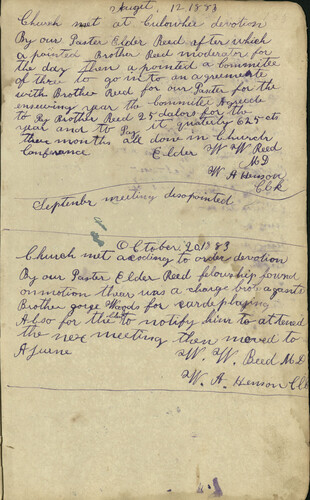 August, 12. 1883
Church met at Culowhe devotion
By our Paster Elder Reed after which
a pointed Brother Reed moderator for
the day then a pointed a Commitee
of three to go in to an agreemente
with Brother Reed for our Paster for the
ensewing year the Commitee Agreede
to Pay Brother Reed 25 dalors for the
year and to Pay it quaterly 625 cts
three months all done in Church
Conference Elder W W Reed
MD
W A Henson
Clk
Septembr meeting disapointed
October, 20, 1883
Church met acoding to order devotion
By our Paster Elder Reed felowship found
on motion thear was a charge brot agants
Brother gorge Woods for carde playing
Also for the Clk to notify him to attend
the nex meeting then moved to
Ajurne W. W. Reed MD
W. A. Henson Clk